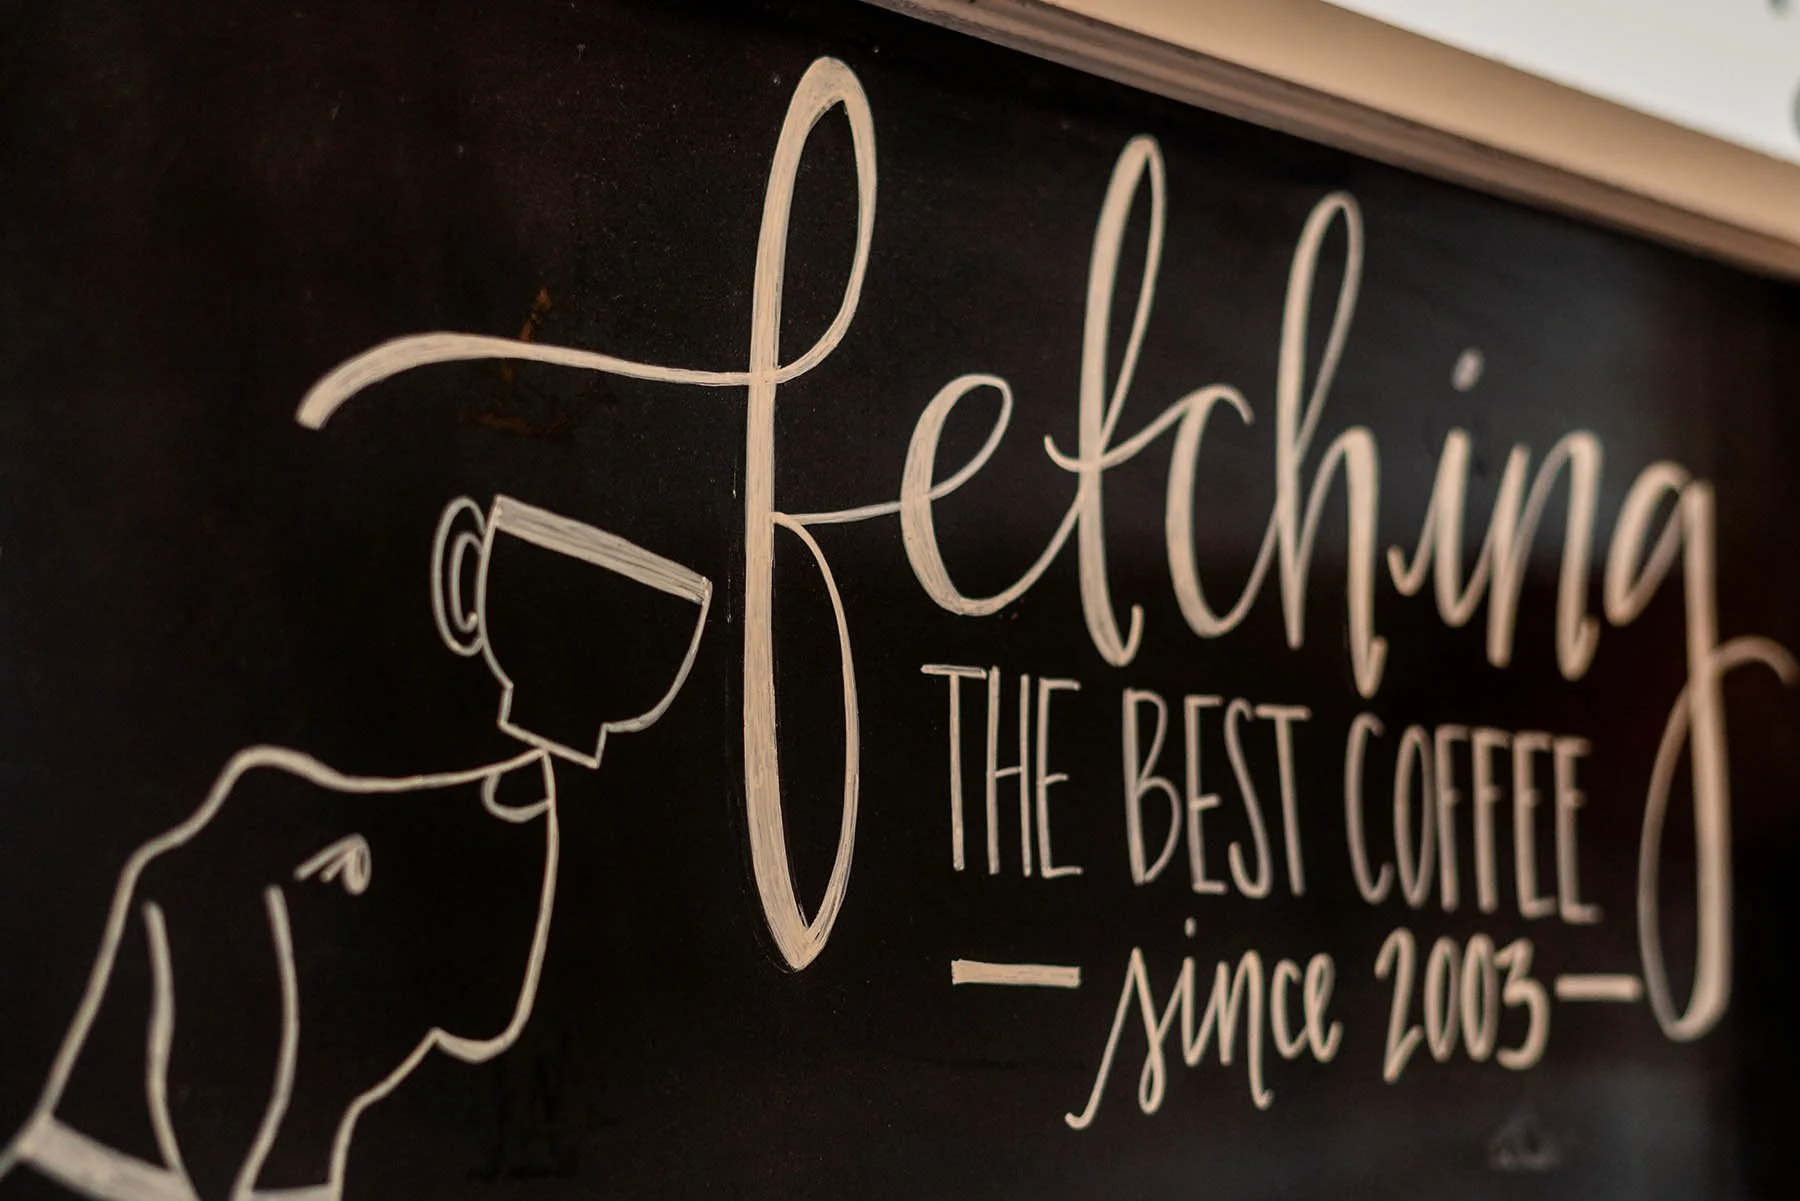 fetching
THE BEST COFFEE
— since 2003 —